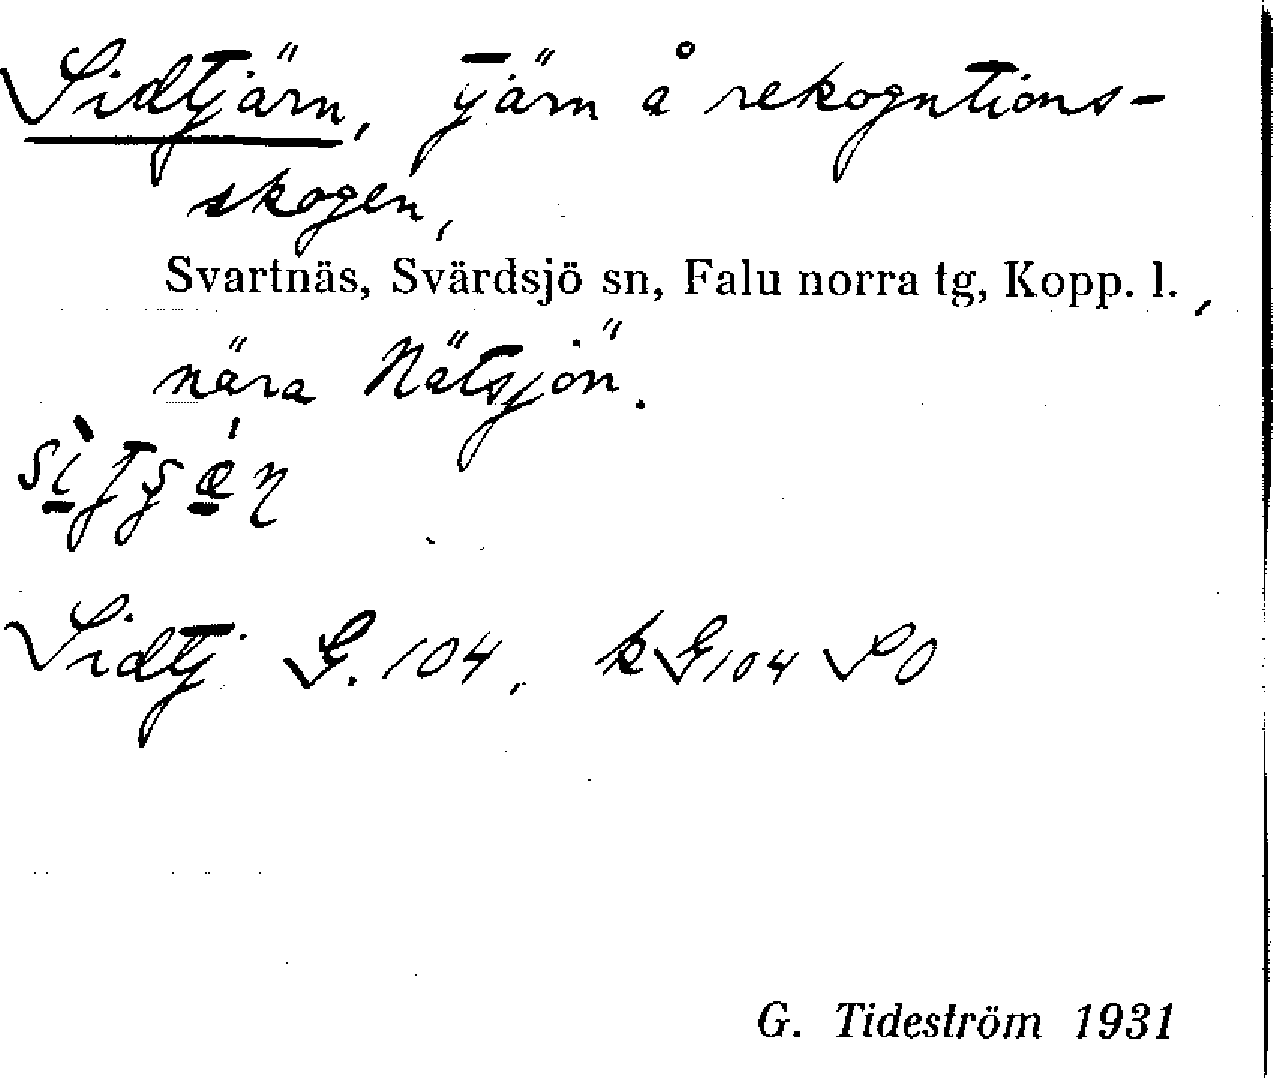 Sidtjärn, tjärn å rekogntions-
skogen,
Svartnäs, Svärdsjö sn, Falu norra tg, Kopp. l.,
nära Nätsjön.
Sidtj G. 104, k G 104 SO
G. Tideström 1931